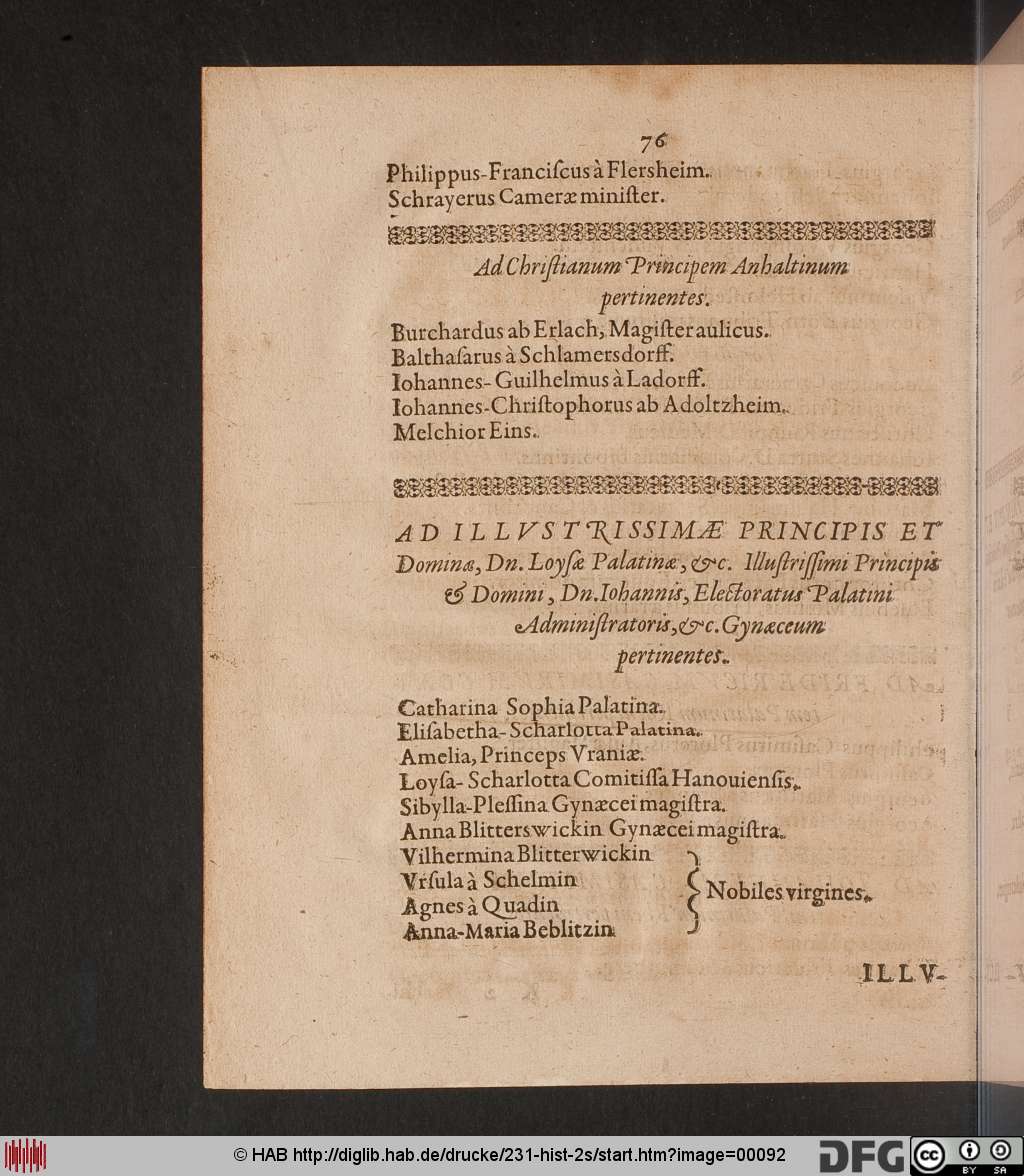 76
Philippus-Franciſcus à Flersheim.
Schrayerus Cameræ miniſter.
Ad Chriſtianum Principem Anhaltinum
pertinentes.
Burchardus ab Erlach, Magiſter aulicus.
Balthaſarus à Schlamersdorff.
Iohannes-Guilhelmus à Ladorff.
Iohannes-Chriſtophorus ab Adoltzheim.
Melchior Eins.
AD ILLVSTRISSIMÆ PRINCIPIS ET
Dominæ, Dn. Loyſæ Palatinæ, &c. Illuſtriſſimi Principis
& Domini, Dn. Iohannis, Electoratus Palatini
Adminiſtratoris, &c. Gynæceum
pertinentes.
Catharina Sophia Palatina.
Eliſabetha-Scharlotta Palatina.
Amelia, Princeps Vraniæ.
Loyſa-Scharlotta Comitiſſa Hanouienſis.
Sibylla-Pleſſina Gynæcei magiſtra.
Anna Blitterswickin Gynæcei magiſtra.
Vilhermina Blitterwickin
Vrſula à Schelmin
Agnes à Quadin
Anna-Maria Beblitzin
Nobiles virgines.
ILLV-
© HAB http://diglib.hab.de/drucke/231-hist-2s/start.htm?image=00092
DFG
cc BY SA